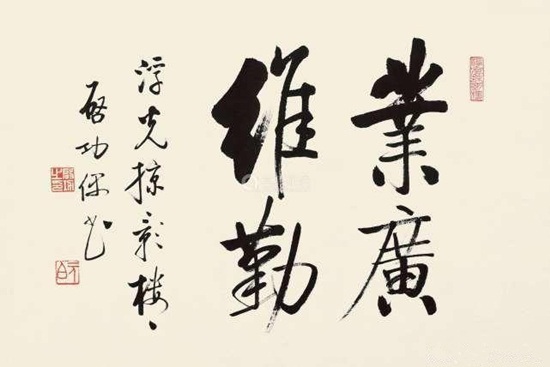 業廣
維勤
浮光掠影樓
啓功